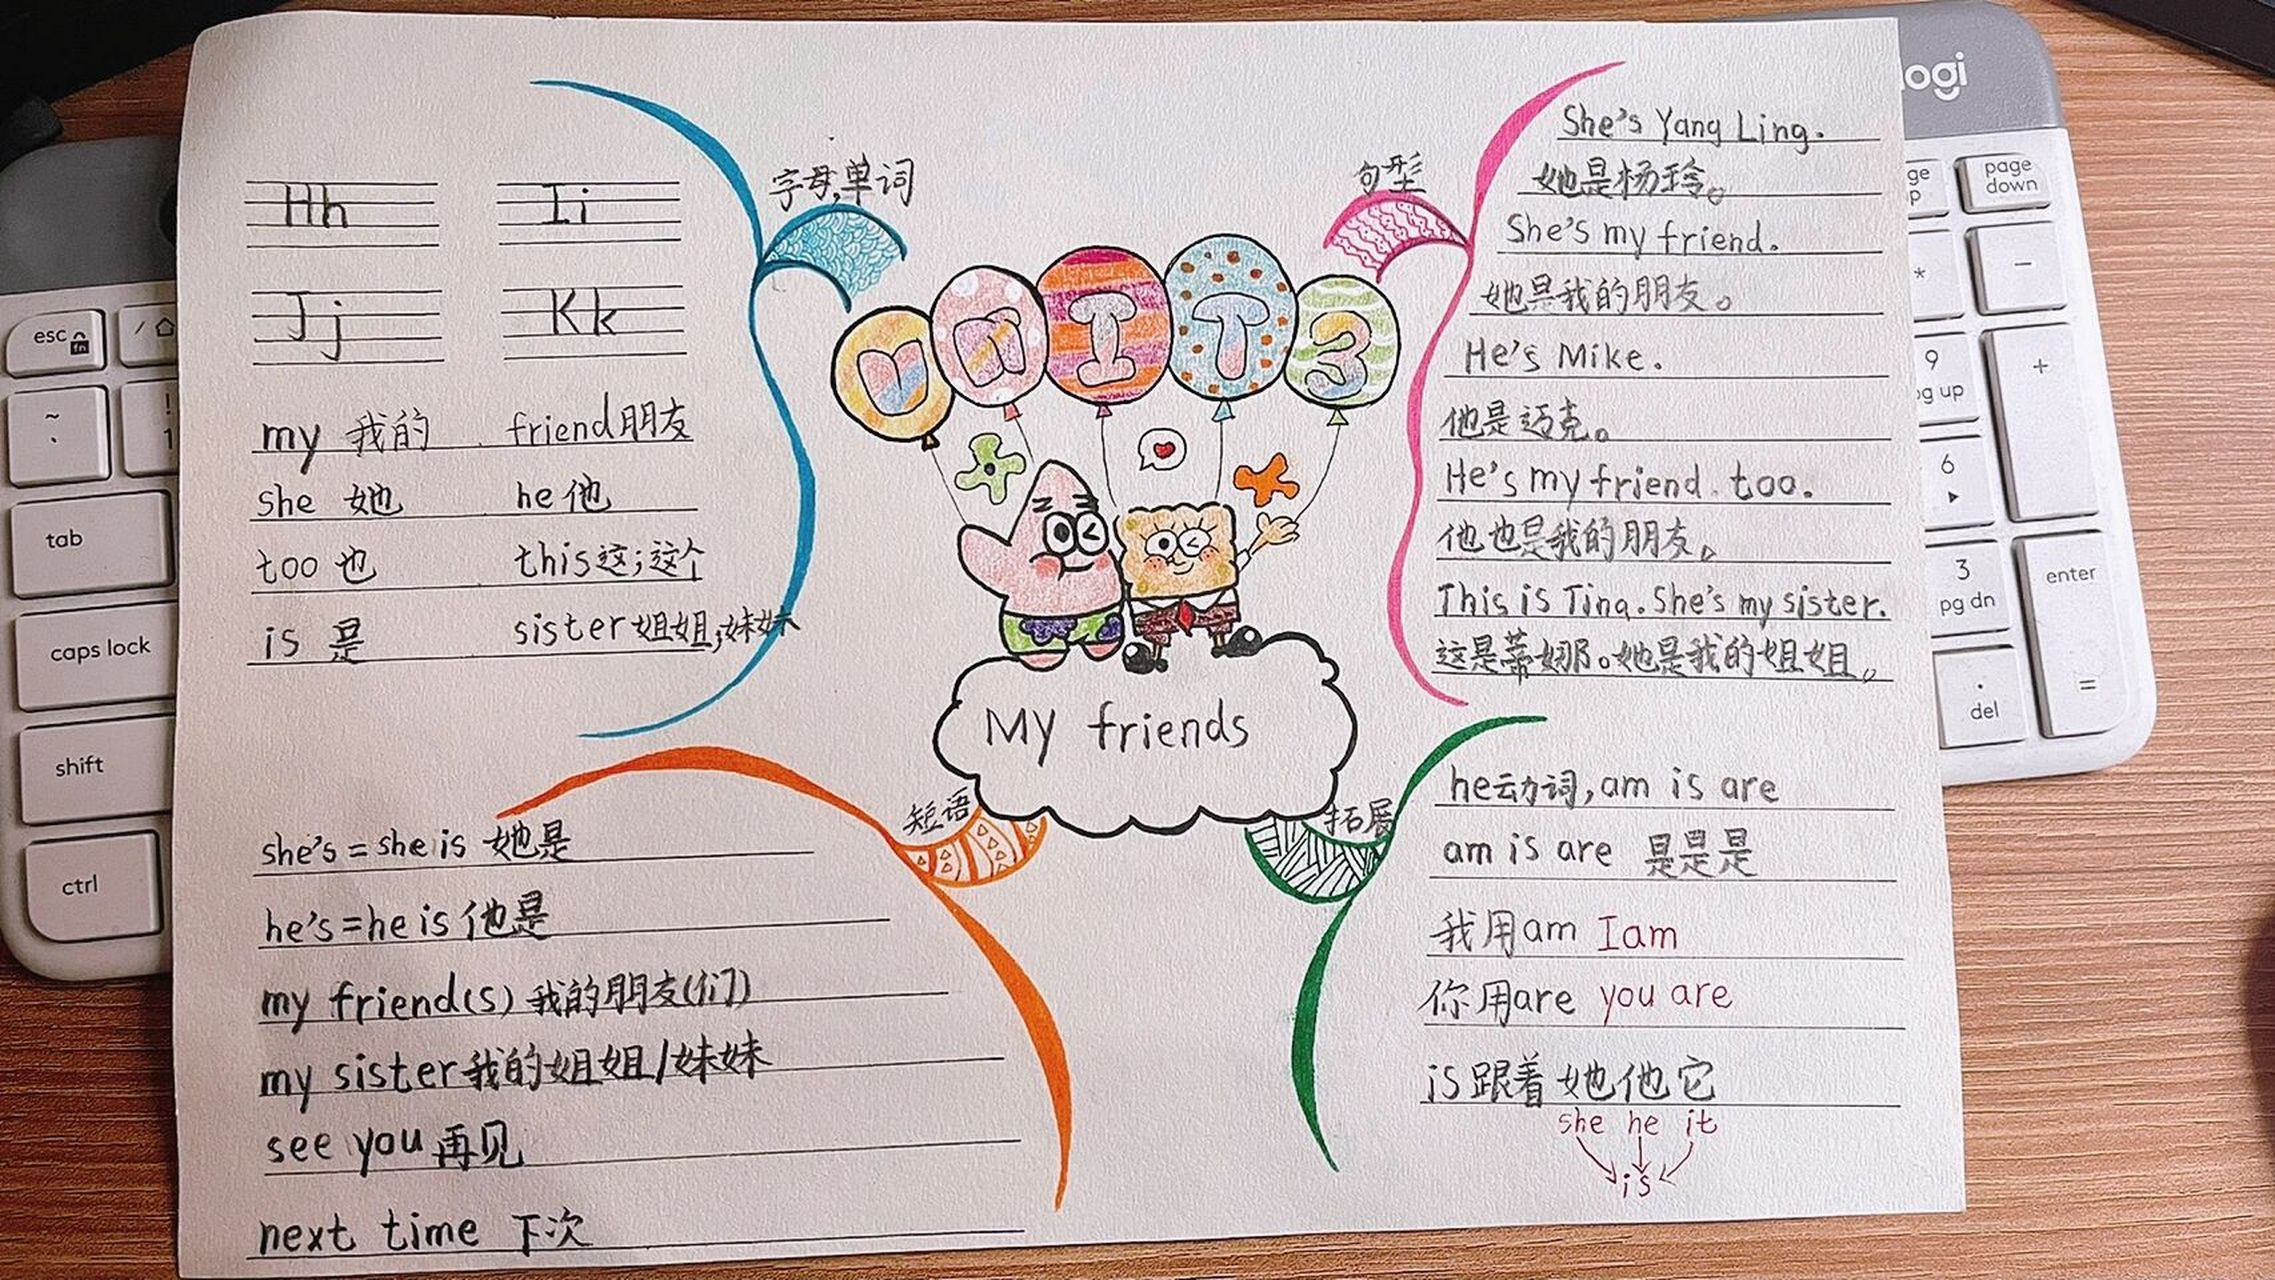 字母,单词
Hh Ii
Jj Kk
my 我的 friend 朋友
she 她 he 他
too 也 this 这;这个
is 是 sister 姐姐;妹妹
UNIT 3
My friends
句型
She's Yang Ling.
她是杨玲。
She's my friend.
她是我的朋友。
He's Mike.
他是迈克。
He's my friend. too.
他也是我的朋友。
This is Tina. She's my sister.
这是蒂娜。她是我的姐姐。
短语
she's = she is 她是
he's = he is 他是
my friend(s) 我的朋友(们)
my sister 我的姐姐/妹妹
see you 再见
next time 下次
拓展
he动词,am is are
am is are 是是是
我用am I am
你用are you are
is跟着她他它
she he it
is
logi
esc
fn
~
`
!
1
tab
caps lock
shift
ctrl
page down
*
-
9
pg up
+
6
3
pg dn
enter
.
del
=